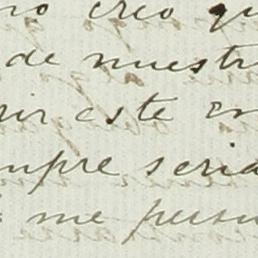 no creo qu
de nuestr
rir este en
mpre seria
me persu